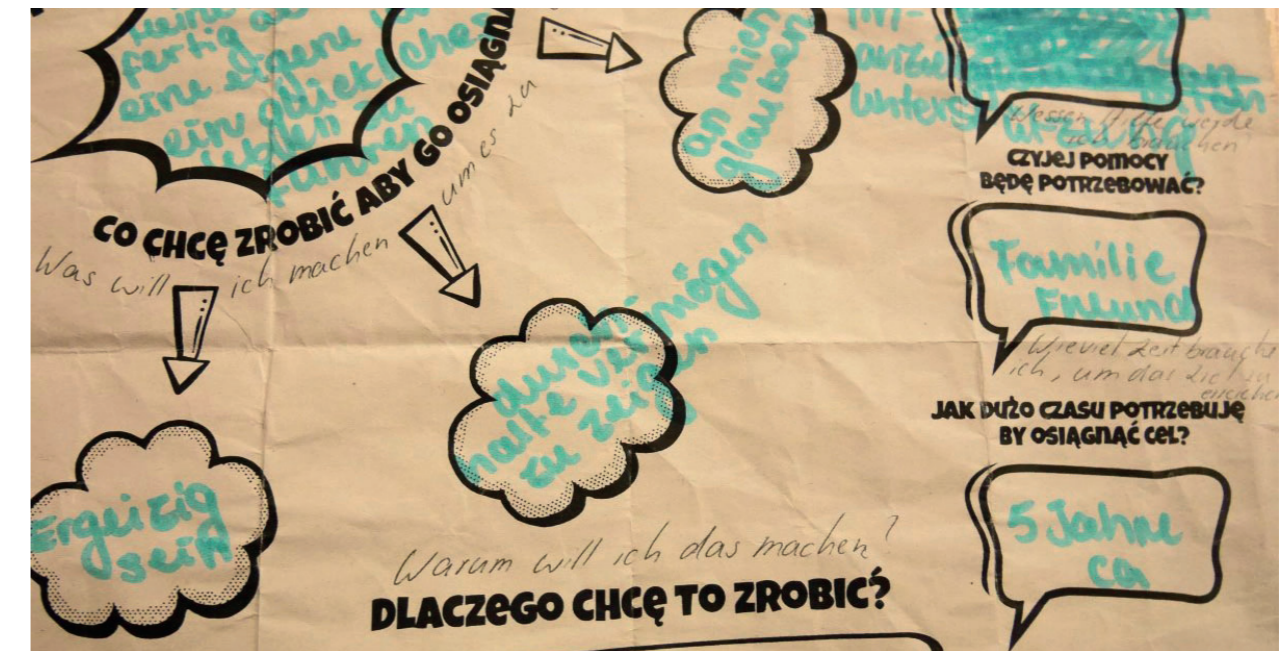 fertig
eine eigene
ein glückliches
leben zu
führen
CO CHCĘ ZROBIĆ ABY GO OSIĄGN
Was will ich machen um es zu
an mich
glauben
unters
Wessen Hilfe werde
ich brauchen
CZYJEJ POMOCY
BĘDĘ POTRZEBOWAĆ?
Familie
Freund
Wieviel Zeit brauche
ich, um das Ziel zu
erreichen
JAK DUŻO CZASU POTRZEBUJĘ
BY OSIĄGNĄĆ CEL?
5 Jahre
ca
durch
vermögen
zu zeigen
Ergeizig
sein
Warum will ich das machen?
DLACZEGO CHCĘ TO ZROBIĆ?